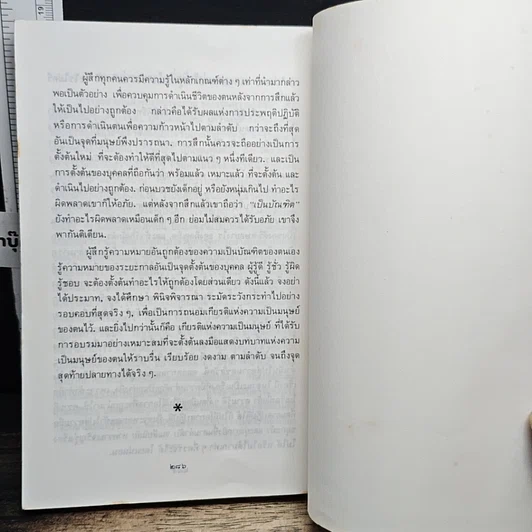 ผู้สึกทุกคนควรมีความรู้ในหลักเกณฑ์ต่าง ๆ เท่าที่นำมากล่าว
พอเป็นตัวอย่าง เพื่อควบคุมการดำเนินชีวิตของตนหลังจากการสึกแล้ว
ให้เป็นไปอย่างถูกต้อง กล่าวคือได้รับผลแห่งการประพฤติปฏิบัติ
หรือการดำเนินตนเพื่อความก้าวหน้าไปตามลำดับ กว่าจะถึงที่สุด
อันเป็นจุดที่มนุษย์พึงปรารถนา. การสึกนั้นควรจะถืออย่างเป็นการ
ตั้งต้นใหม่ ที่จะต้องทำให้ดีที่สุดไปตามแนว ๆ หนึ่งทีเดียว. และเป็น
การตั้งต้นของบุคคลที่ถือกันว่า พร้อมแล้ว เหมาะแล้ว ที่จะตั้งต้น และ
ดำเนินไปอย่างถูกต้อง. ก่อนบวชยังเด็กอยู่ หรือยังหนุ่มเกินไป ทำอะไร
ผิดพลาดเขาก็ให้อภัย. แต่หลังจากสึกแล้วเขาถือว่า "เป็นบัณฑิต"
ยังทำอะไรผิดพลาดเหมือนเด็ก ๆ อีก ย่อมไม่สมควรได้รับอภัย เขาจึง
พากันติเตียน.
ผู้สึกรู้ความหมายอันถูกต้องของความเป็นบัณฑิตของตนเอง
รู้ความหมายของระยะกาลอันเป็นจุดตั้งต้นของบุคคล ผู้รู้ดี รู้ชั่ว รู้ผิด
รู้ชอบ จะต้องตั้งต้นทำอะไรให้ถูกต้องโดยส่วนเดียว ดังนี้แล้ว จงอย่า
ได้ประมาท, จงได้ศึกษา พินิจพิจารณา ระมัดระวังกระทำไปอย่าง
รอบคอบที่สุดจริง ๆ, เพื่อเป็นการถนอมเกียรติแห่งความเป็นมนุษย์
ของตนไว้. และยิ่งไปกว่านั้นก็คือ เกียรติแห่งความเป็นมนุษย์ ที่ได้รับ
การอบรมมาอย่างเหมาะสมที่จะตั้งต้นลงมือแสดงบทบาทแห่งความ
เป็นมนุษย์ของตนให้ราบรื่น เรียบร้อย งดงาม ตามลำดับ จนถึงจุด
สุดท้ายปลายทางได้จริง ๆ.
*
๒๘๖
19